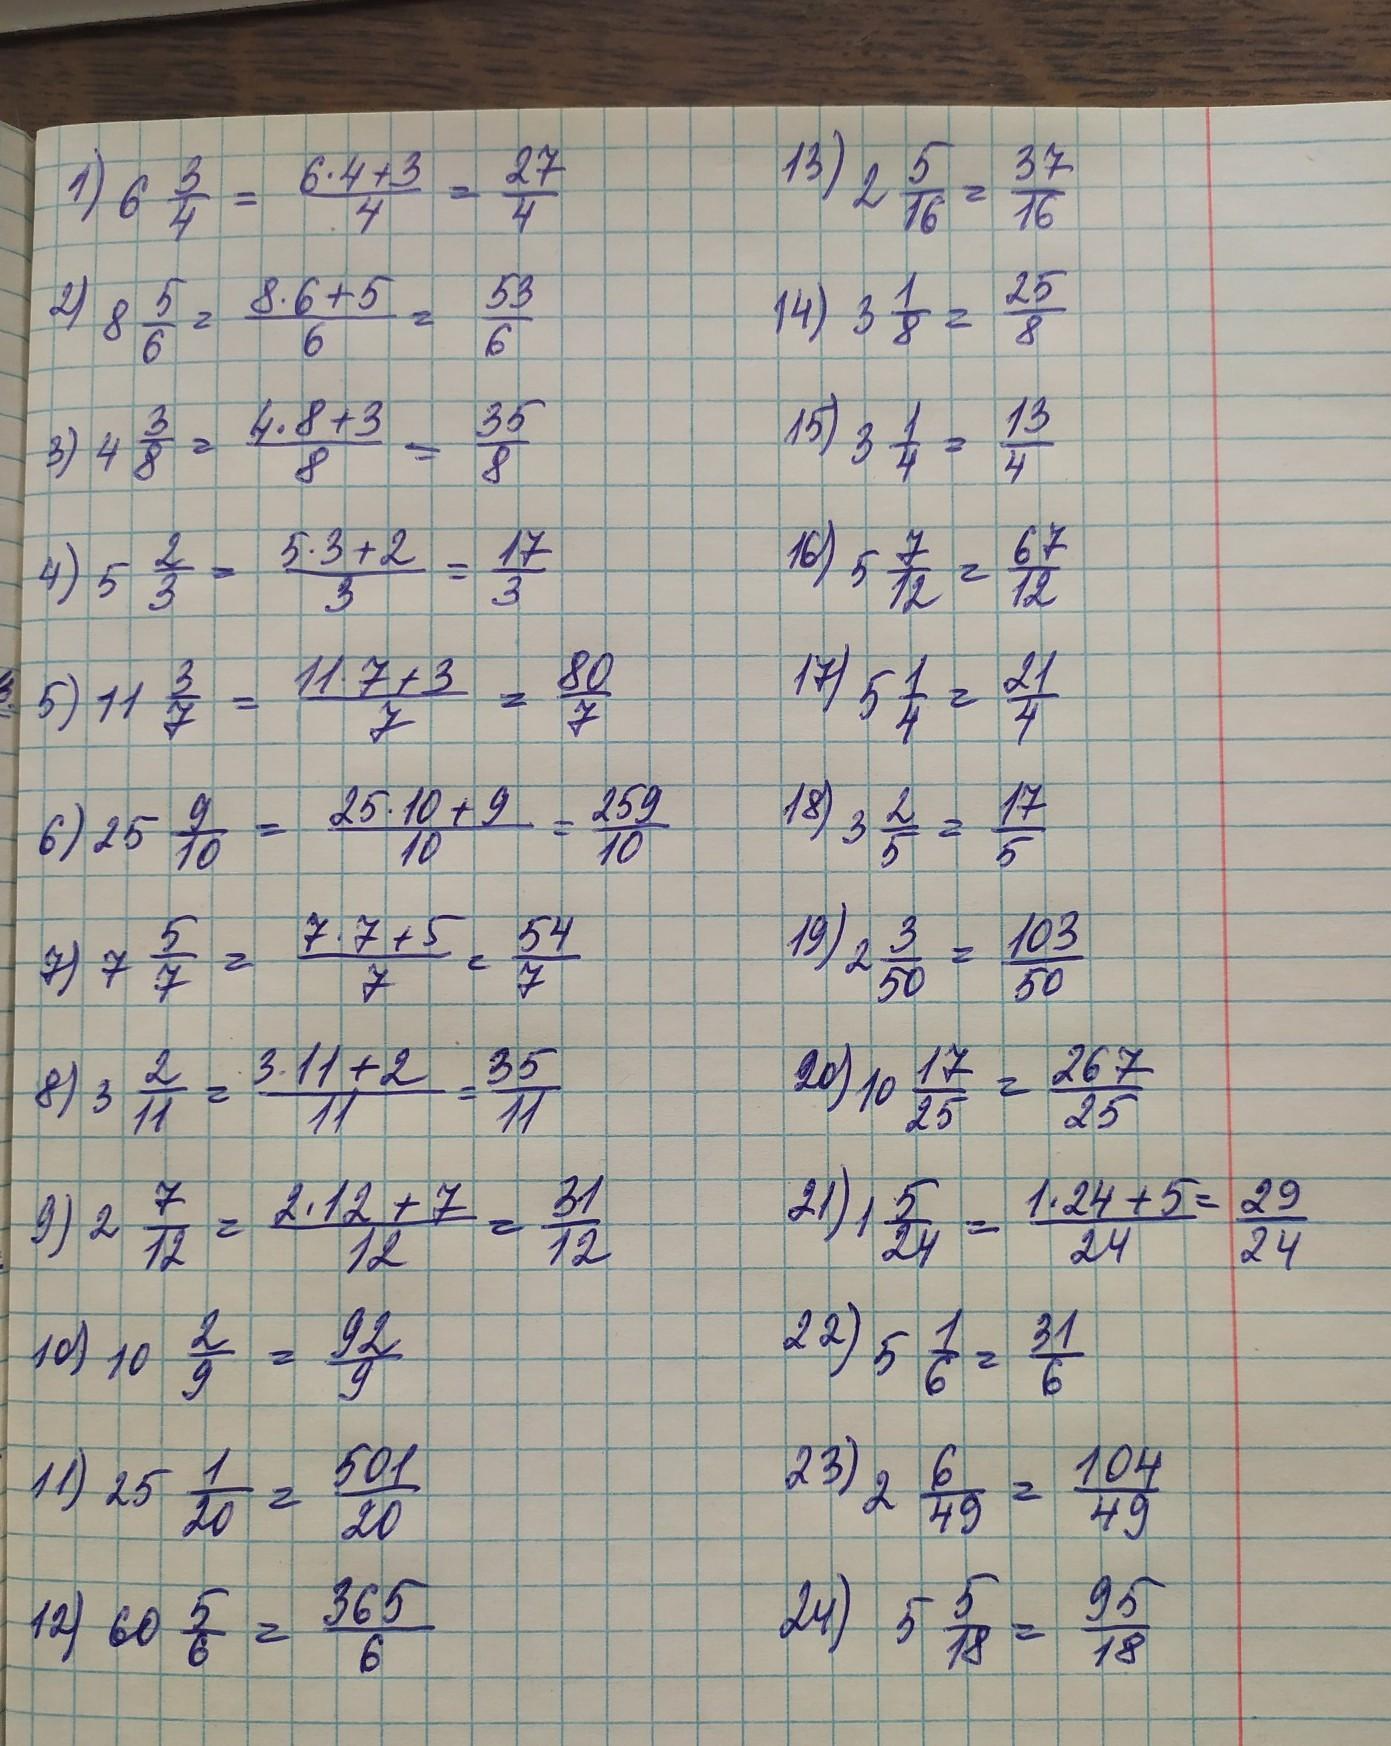 1) 6 3/4 = (6·4+3)/4 = 27/4
2) 8 5/6 = (8·6+5)/6 = 53/6
3) 4 3/8 = (4·8+3)/8 = 35/8
4) 5 2/3 = (5·3+2)/3 = 17/3
5) 11 3/7 = (11·7+3)/7 = 80/7
6) 25 9/10 = (25·10+9)/10 = 259/10
7) 7 5/7 = (7·7+5)/7 = 54/7
8) 3 2/11 = (3·11+2)/11 = 35/11
9) 2 7/12 = (2·12+7)/12 = 31/12
10) 10 2/9 = 92/9
11) 25 1/20 = 501/20
12) 60 5/6 = 365/6
13) 2 5/16 = 37/16
14) 3 1/8 = 25/8
15) 3 1/4 = 13/4
16) 5 7/12 = 67/12
17) 5 1/4 = 21/4
18) 3 2/5 = 17/5
19) 2 3/50 = 103/50
20) 10 17/25 = 267/25
21) 1 5/24 = (1·24+5)/24 = 29/24
22) 5 1/6 = 31/6
23) 2 6/49 = 104/49
24) 5 5/18 = 95/18